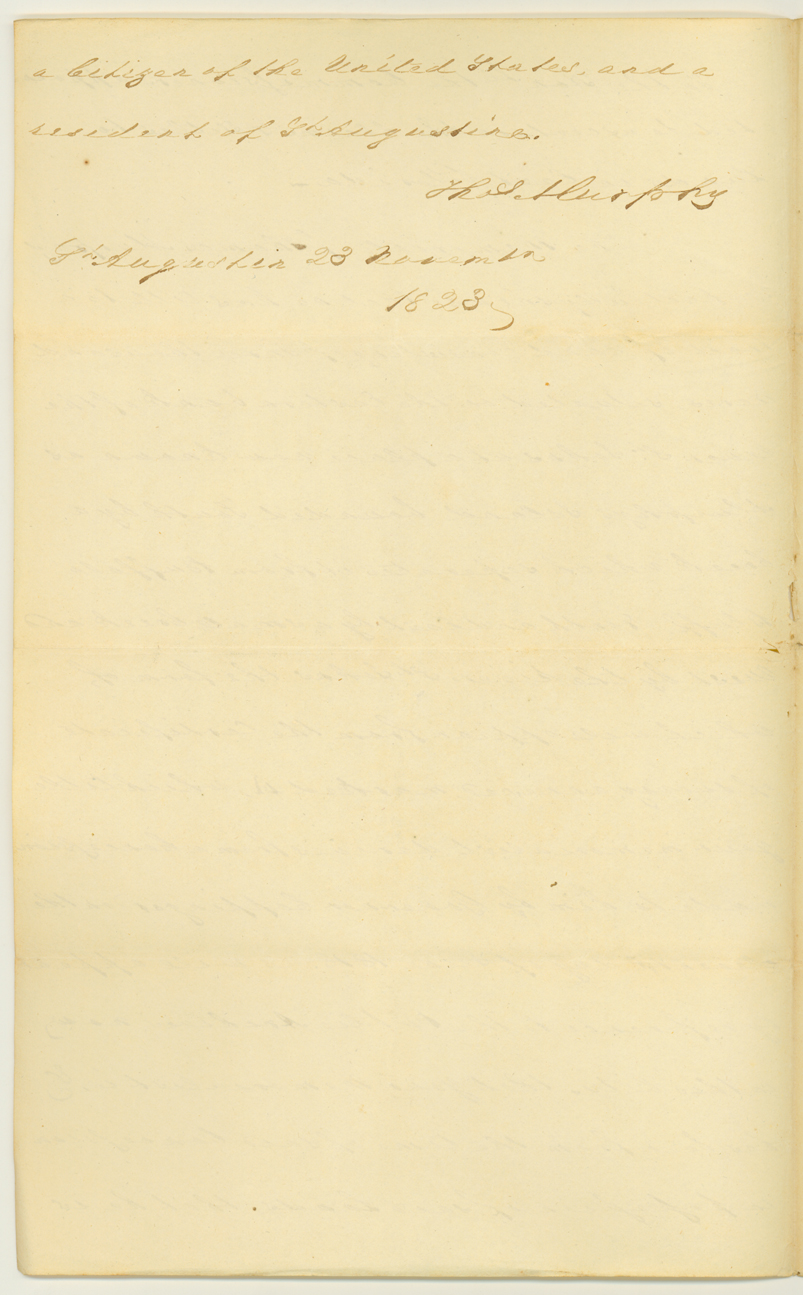 a Citizen of the United States, and a
resident of St Augustine.
Thos. Murphy
St Augustin 23 Novembr
1823